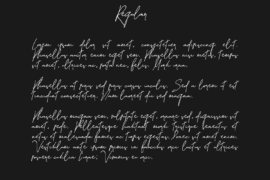 Regular
Lorem ipsum dolor sit amet, consectetuer adipiscing elit.
Phasellus mattis enim eget sem. Phasellus nisi metus, tempus
sit amet, ultrices ac, porta nec, felis.
Phasellus at purus sed purus cursus iaculis. Sed a lorem et est
tincidunt consectetuer. Nam laoreet dui sed magna.
Phasellus magna sem, vulputate eget, ornare sed, dignissim sit
amet, pede. Pellentesque habitant morbi tristique senectus et
netus et malesuada fames ac turpis egestas. Fusce sit amet enim.
Vestibulum ante ipsum primis in faucibus orci luctus et ultrices
posuere cubilia Curae; Vivamus eu mi.